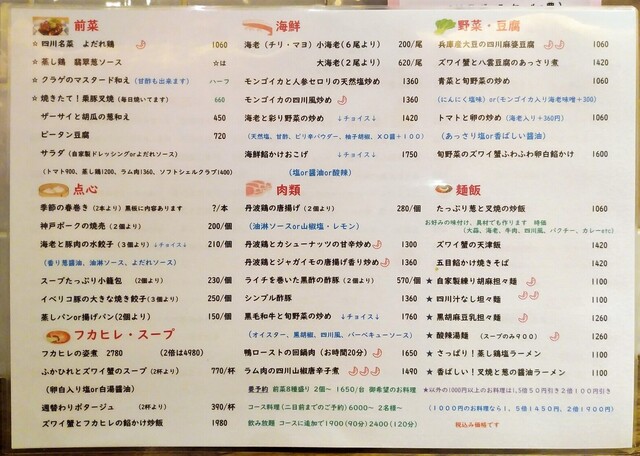 前菜
☆ 四川名菜 よだれ鶏 1060
☆ 蒸し鶏 翡翠葱ソース ☆は
☆ クラゲのマスタード和え (甘酢も出来ます) ハーフ
☆ 焼きたて!栗豚叉焼 (毎日焼いてます) 660
ザーサイと胡瓜の葱和え 450
ピータン豆腐 720
サラダ (自家製ドレッシングorよだれソース)
(トマト900、蒸し鶏1200、ラム肉1360、ソフトシェルクラブ1400)
点心
季節の春巻き (2本より) 黒板に内容あります ?/本
神戸ポークの焼売 (2個より) 200/個
海老と豚肉の水餃子 (3個より) ↓チョイス↓ 210/個
(香り葱醤油、油淋ソース、よだれソース)
スープたっぷり小籠包 (2個より) 230/個
イベリコ豚の大きな焼き餃子 (3個より) 250/個
蒸しパンor揚げパン (2個より) 150/個
フカヒレ・スープ
フカヒレの姿煮 2780 (2倍は4980)
ふかひれとズワイ蟹のスープ (2杯より) 770/杯
(卵白入り塩or白湯醤油)
週替わりポタージュ (2杯より) 390/杯
ズワイ蟹とフカヒレの餡かけ炒飯 1980
海鮮
海老 (チリ・マヨ) 小海老 (6尾より) 200/尾
大海老 (2尾より) 620/尾
モンゴイカと人参セロリの天然塩炒め 1360
モンゴイカの四川風炒め 1360
海老と彩り野菜の炒め ↓チョイス↓ 1420
(天然塩、甘酢、ピリ辛パウダー、柚子胡椒、XO醤+100)
海鮮餡かけおこげ ↓チョイス↓ 1750
(塩or醤油or酸辣)
肉類
丹波鶏の唐揚げ (2個より) 280/個
(油淋ソースor山椒塩・レモン)
丹波鶏とカシューナッツの甘辛炒め 1300
丹波鶏とジャガイモの唐揚げ香り炒め 1360
ライチを巻いた黒酢の酢豚 (2個より) 570/個
シンプル酢豚 1360
黒毛和牛と旬野菜の炒め ↓チョイス↓ 1760
(オイスター、黒胡椒、四川風、バーベキューソース)
鴨ローストの回鍋肉 (お時間20分) 1650
ラム肉の四川山椒唐辛子煮 1490
要予約 前菜8種盛り 2個~ 1650/台 御希望のお料理
コース料理 (二日前までのご予約) 6000~ 2名様~
飲み放題 コースに追加で1900(90分) 2400(120分)
野菜・豆腐
兵庫産大豆の四川麻婆豆腐 1060
ズワイ蟹と八妻豆腐のあっさり煮 1420
青菜と旬野菜の炒め 1060
(にんにく塩味) or(モンゴイカ入り海老味噌+300)
トマトと卵の炒め (海老入り+360円) 1060
(あっさり塩or香ばしい醤油)
旬野菜のズワイ蟹ふわふわ卵白餡かけ 1600
麺飯
たっぷり葱と叉焼の炒飯 1060
お好みの味付け、具材でも作ります 時価
(大蒜、海老、牛肉、四川風、パクチー、カレーetc)
ズワイ蟹の天津飯 1420
五目餡かけ焼きそば 1420
★ 自家製練り胡麻担々麺 1100
★ 四川汁なし担々麺 1100
★ 黒胡麻豆乳担々麺 1260
★ 酸辣湯麺 (スープのみ900) 1260
★ さっぱり!蒸し鶏塩ラーメン 1100
★ 香ばしい!叉焼と葱の醤油ラーメン 1100
★以外の1000円以上のお料理は1,5倍50円引き2倍100円引き
(1000円のお料理なら1,5倍1450円、2倍1900円)
税込み価格です